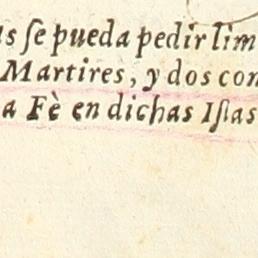 se pueda pedir lim
Martires, y dos con
a Fè en dichas Iſlas